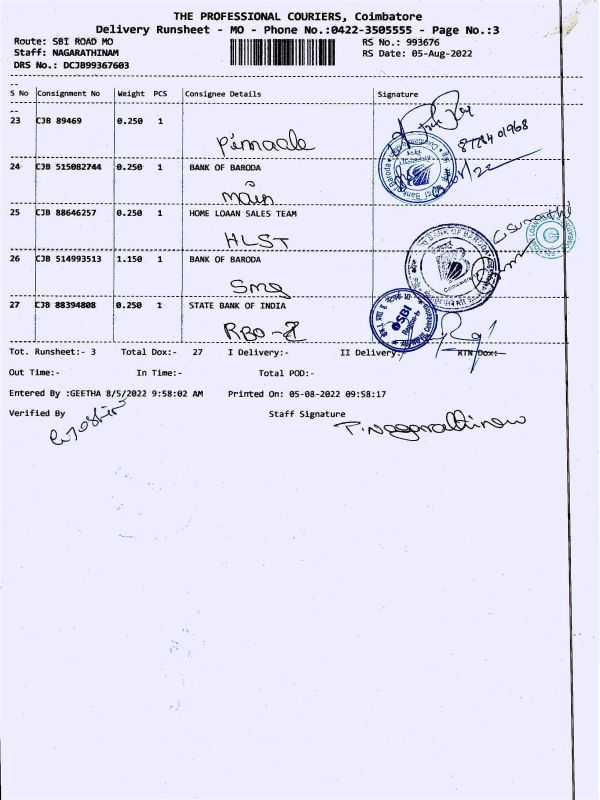 THE PROFESSIONAL COURIERS, Coimbatore
Delivery Runsheet - MO - Phone No.:0422-3505555 - Page No.:3
Route: SBI ROAD MO RS No.: 993676
Staff: NAGARATHINAM RS Date: 05-Aug-2022
DRS No.: DCJB99367603
S No Consignment No Weight PCS Consignee Details Signature
23 CJB 89469 0.250 1
Pinnacle
24 CJB 515082744 0.250 1 BANK OF BARODA
main
25 CJB 88646257 0.250 1 HOME LOAAN SALES TEAM
HLST
26 CJB 514993513 1.150 1 BANK OF BARODA
Smg
27 CJB 88394808 0.250 1 STATE BANK OF INDIA
SBI
RBO -
Tot. Runsheet:- 3 Total Dox:- 27 I Delivery:- II Delivery RTN Dox:-
Out Time:- In Time:- Total POD:-
Entered By :GEETHA 8/5/2022 9:58:02 AM Printed On: 05-08-2022 09:58:17
Verified By Staff Signature
P. Nagarathinam